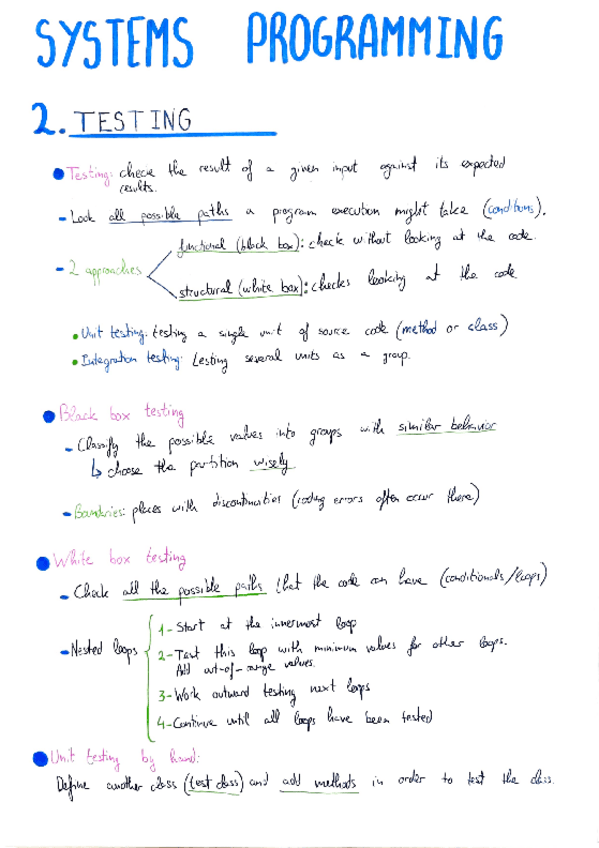 SYSTEMS PROGRAMMING
2. TESTING
Testing: check the result of a given input against its expected
results.
- Look all possible paths a program execution might take (conditions).
functional (black box): check without looking at the code.
- 2 approaches
structural (white box): checks looking at the code
• Unit testing: testing a single unit of source code (method or class)
• Integration testing: testing several units as a group.
Black box testing
- Classify the possible values into groups with similar behavior
↳ choose the partition wisely
- Boundaries: places with discontinuities (coding errors often occur there)
White box testing
- Check all the possible paths that the code can have (conditionals/loops)
1- Start at the innermost loop
- Nested loops
2- Test this loop with minimum values for other loops.
Add out-of-range values.
3- Work outward testing next loops
4- Continue until all loops have been tested
Unit testing by hand:
Define another class (test class) and add methods in order to test the class.